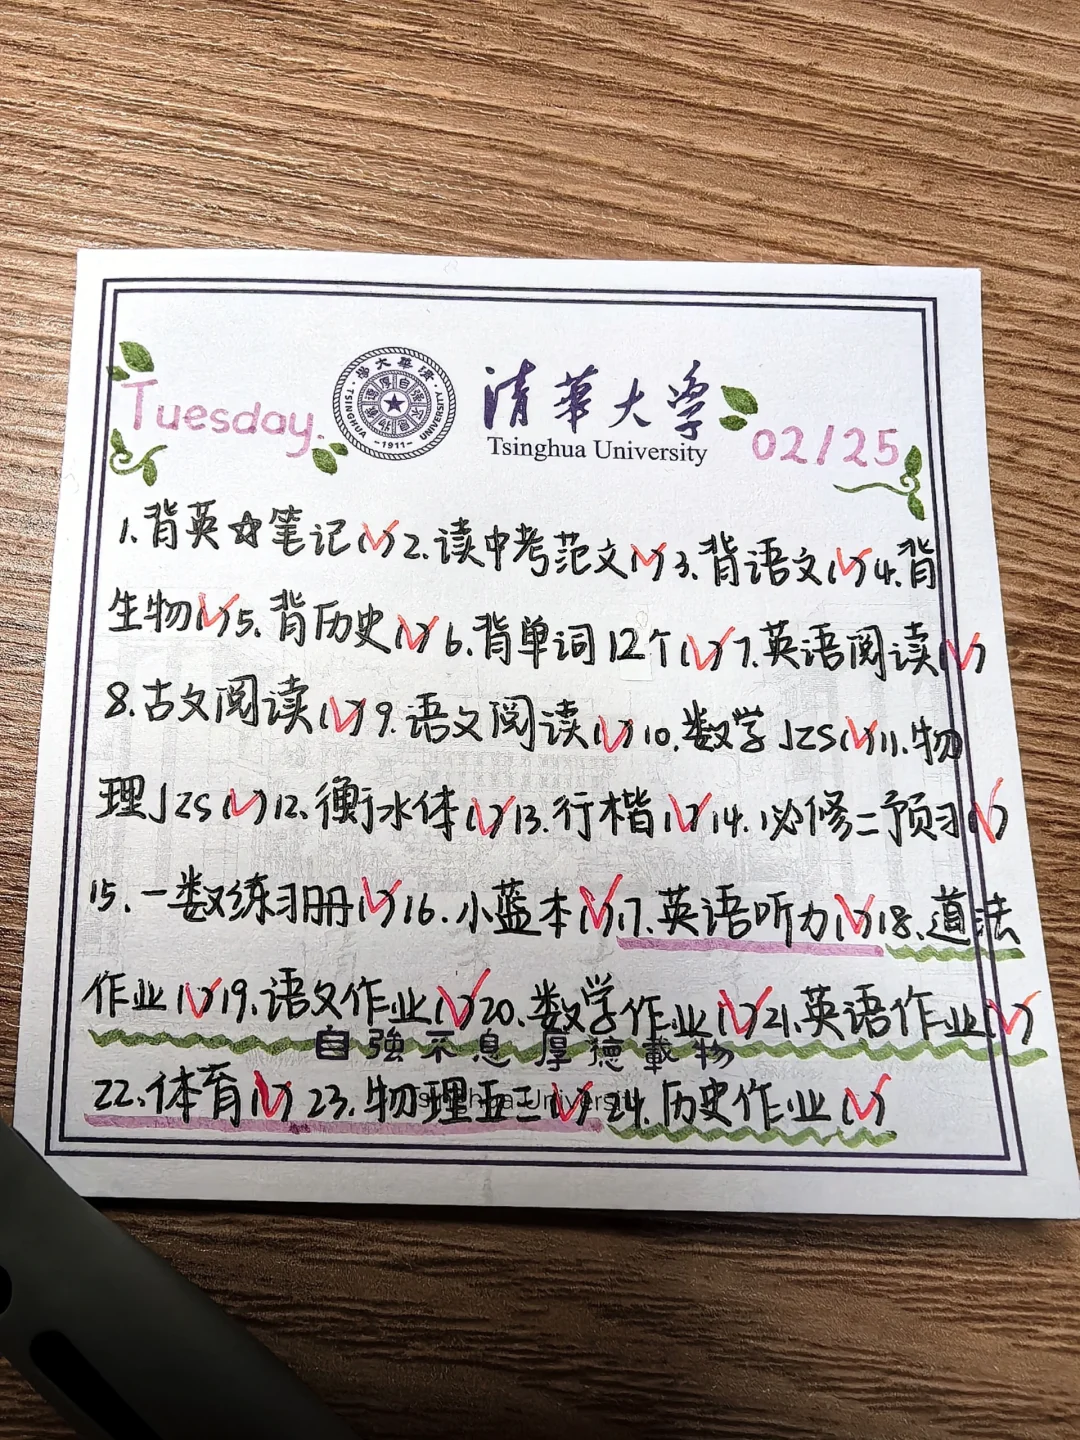 Tuesday.
清華大學
Tsinghua University
02/25
清華大學
TSINGHUA UNIVERSITY
自强不息 厚德載物
-1911-
1.背英☆笔记(✓)2.读中考范文(✓)3.背语文(✓)4.背
生物(✓)5.背历史(✓)6.背单词12个(✓)7.英语阅读(✓)
8.古文阅读(✓)9.语文阅读(✓)10.数学JZS(✓)11.物
理JZS(✓)12.衡水体(✓)13.行楷(✓)14.必修二预习(✓)
15.一数练习册(✓)16.小蓝本(✓)17.英语听力(✓)18.道法
作业(✓)19.语文作业(✓)20.数学作业(✓)21.英语作业(✓)
自強不息 厚德載物
22.体育(✓)23.物理五三(✓)24.历史作业(✓)
Tsinghua University